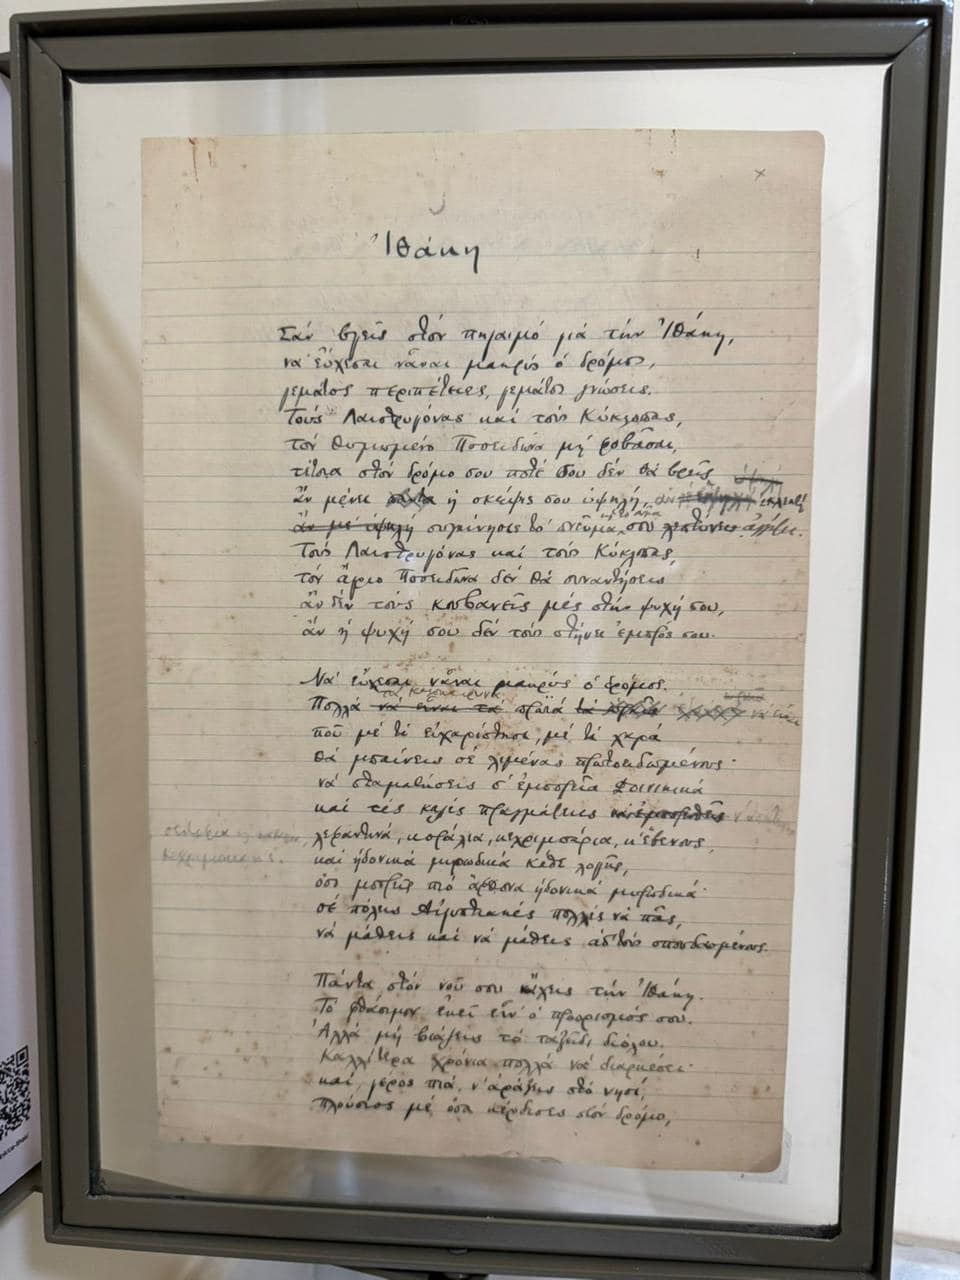 Ἰθάκη
Σάν βγεῖς στόν πηγαιμό γιά τήν Ἰθάκη,
νά εὔχεσαι νἆναι μακρύς ὁ δρόμος,
γεμᾶτος περιπέτειες, γεμᾶτος γνώσεις.
Τούς Λαιστρυγόνας καί τούς Κύκλωπας,
τόν θυμωμένο Ποσειδῶνα μή φοβᾶσαι,
τέτοια στόν δρόμο σου ποτέ σου δέν θά βρεῖς
ὑψηλή
ἄν μένει πάντα ἡ σκέψις σου ὑψηλή, ἄν ἐκλεκτή
ἄν μέ ὑψηλή συγκίνησις τό πνεῦμα σου λεπτύνεις ἀγγίζει.
Τούς Λαιστρυγόνας καί τούς Κύκλωπας,
τόν ἄγριο Ποσειδῶνα δέν θά συναντήσεις
ἄν δέν τούς κουβανεῖς μές στήν ψυχή σου,
ἄν ἡ ψυχή σου δέν τούς στήνει ἐμπρός σου.
Νά εὔχεσαι νἆναι μακρύς ὁ δρόμος.
τά καλοκαιρινά
Πολλά νά εἶναι τά πρωϊά νά εἶναι
πού μέ τί εὐχαρίστησι, μέ τί χαρά
θά μπαίνεις σέ λιμένας πρωτοειδωμένους·
νά σταματήσεις σ' ἐμπορεῖα Φοινικικά
καί τές καλές πραγμάτειες νά ἐμπορευθεῖς
σεντέφια
κεχριμπάρια κ'
λεβαντινά, κοράλλια, κεχριμπάρια, κ' ἔβενους,
καί ἡδονικά μυρωδικά κάθε λογῆς,
ὅσο μπορεῖς πιό ἄφθονα ἡδονικά μυρωδικά·
σέ πόλεις Αἰγυπτιακές πολλές νά πᾶς,
νά μάθεις καί νά μάθεις ἀπ' τούς σπουδασμένους.
Πάντα στόν νοῦ σου νἄχεις τήν Ἰθάκη.
Τό φθάσιμον ἐκεῖ εἶν' ὁ προορισμός σου.
Ἀλλά μή βιάζεις τό ταξεῖδι διόλου.
Καλλίτερα χρόνια πολλά νά διαρκέσει·
καί, γέρος πιά, ν' ἀράξεις στό νησί,
πλούσιος μέ ὅσα κέρδισες στόν δρόμο,